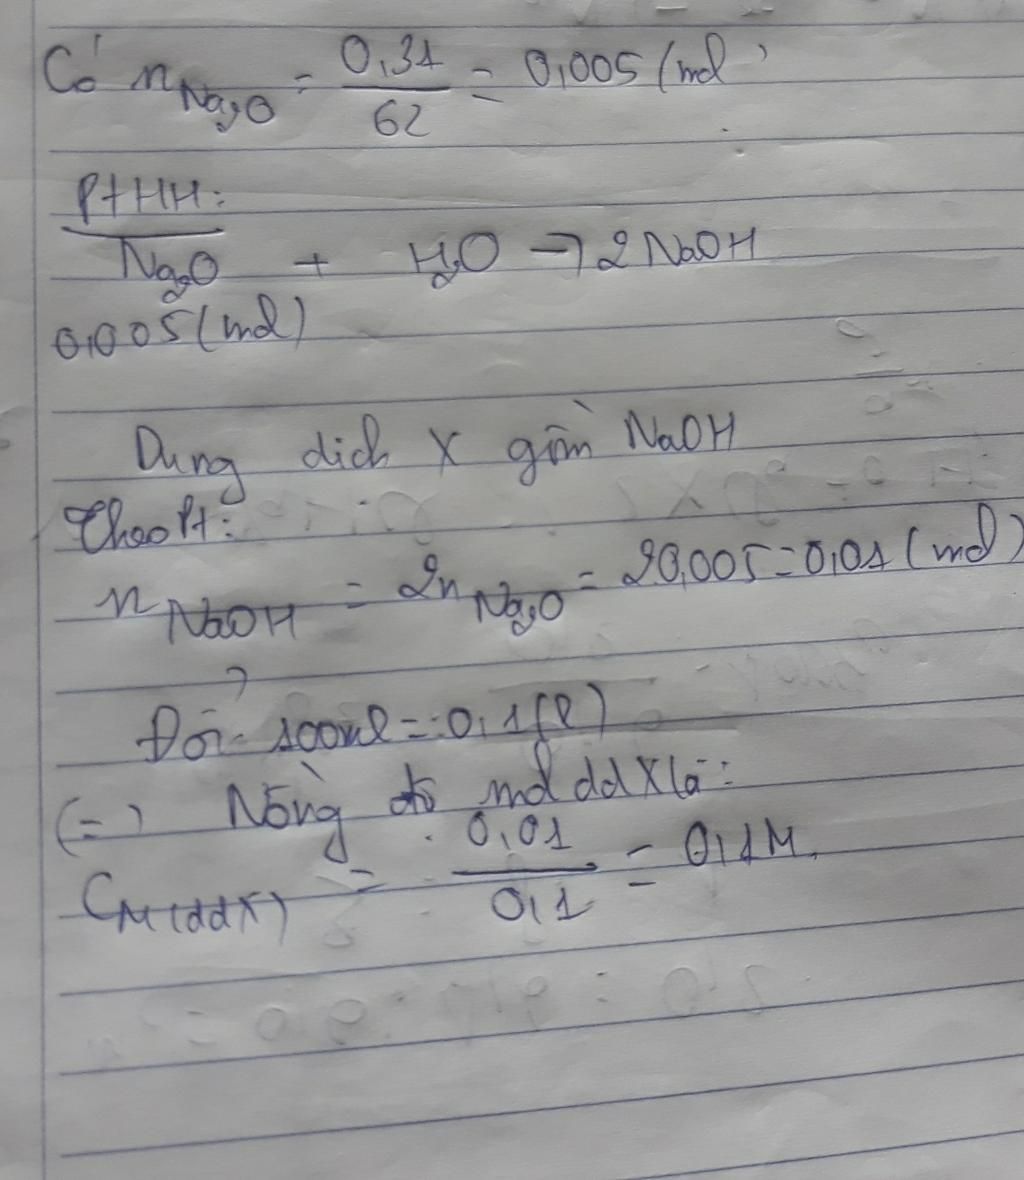 Có n Na2O = 0,31 / 62 = 0,005 (mol)
PtHH:
Na2O + H2O → 2 NaOH
0,005 (mol)
Dung dich X gồm NaOH
Theo Pt:
n NaOH = 2n Na2O = 2 0,005 = 0,01 (mol)
Đổi 100ml = 0,1 (l)
(=) Nồng độ mol dd X là:
CM(ddX) = 0,01 / 0,1 = 0,1M.